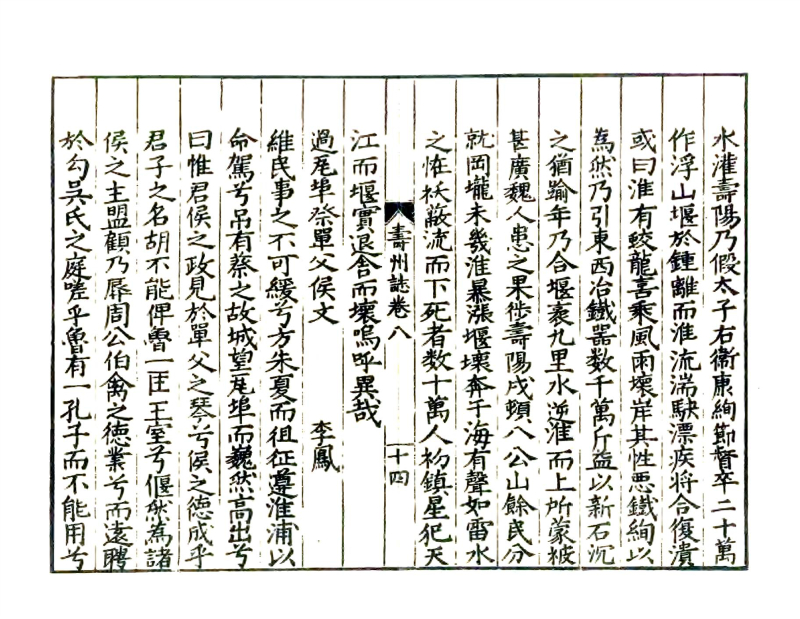 水灌壽陽乃假太子右衞康絢節督卒二十萬
作浮山堰於鍾離而淮流湍駃漂疾將合復潰
或曰淮有蛟龍喜乘風雨壞岸其性悪鐵絢以
為然乃引東西冶鐵器数千萬斤益以新石沉
之猶踰年乃合堰袤九里水逆淮而上所蒙被
甚廣魏人患之果徙壽陽戍頓八公山餘民分
就岡壠未幾淮暴漲堰壞奔于海有聲如雷水
之怪妖蔽流而下死者数十萬人初鎮星犯天
壽州誌卷八
十四
江而堰實退舍而壞嗚呼異哉
過瓦埠祭單父侯文
李鳳
維民事之不可緩兮方朱夏而徂征遵淮浦以
命駕兮吊有蔡之故城望瓦埠而巍然高出兮
曰惟君侯之政見於單父之琴兮侯之德成乎
君子之名胡不能俾魯一匡王室兮偃然為諸
侯之主盟顧乃辱周公伯禽之德業兮而遠聘
於勾吳氏之庭嗟乎魯有一孔子而不能用兮